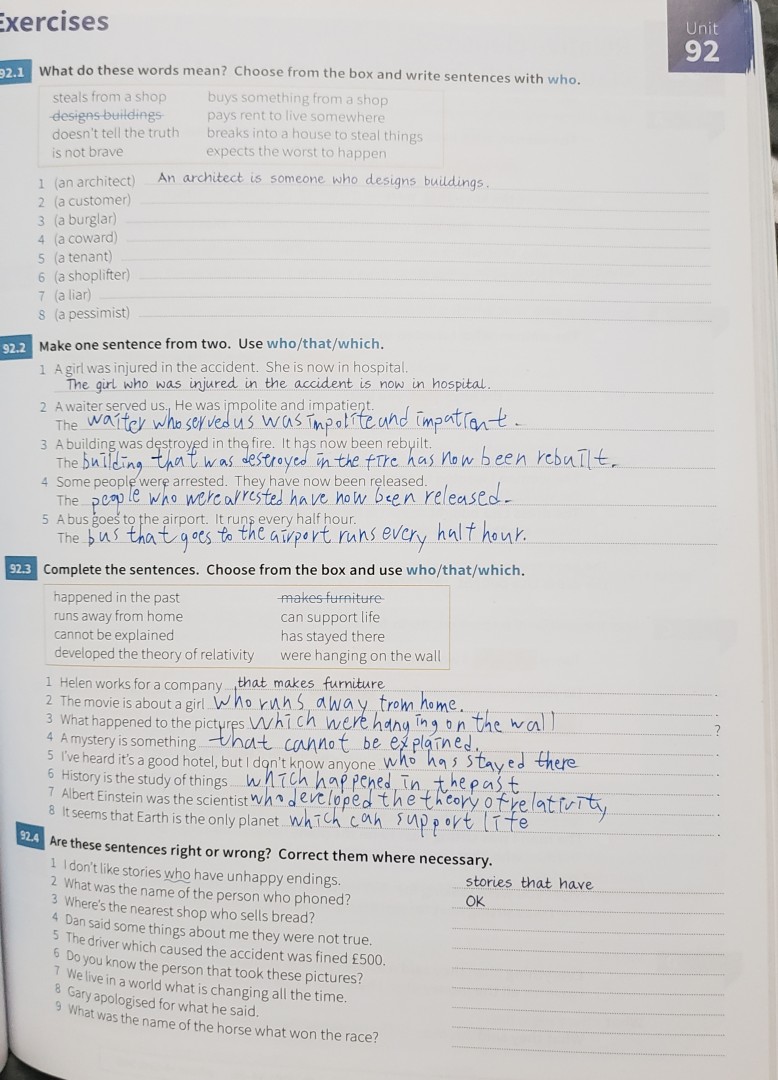 Exercises
Unit
92
92.1 What do these words mean? Choose from the box and write sentences with who.
steals from a shop buys something from a shop
designs buildings pays rent to live somewhere
doesn't tell the truth breaks into a house to steal things
is not brave expects the worst to happen
1 (an architect) An architect is someone who designs buildings.
2 (a customer)
3 (a burglar)
4 (a coward)
5 (a tenant)
6 (a shoplifter)
7 (a liar)
8 (a pessimist)
92.2 Make one sentence from two. Use who/that/which.
1 A girl was injured in the accident. She is now in hospital.
The girl who was injured in the accident is now in hospital.
2 A waiter served us. He was impolite and impatient.
The waiter who served us was impolite and impatient.
3 A building was destroyed in the fire. It has now been rebuilt.
The building that was destroyed in the fire has now been rebuilt.
4 Some people were arrested. They have now been released.
The people who were arrested have now been released.
5 A bus goes to the airport. It runs every half hour.
The bus that goes to the airport runs every half hour.
92.3 Complete the sentences. Choose from the box and use who/that/which.
happened in the past makes furniture
runs away from home can support life
cannot be explained has stayed there
developed the theory of relativity were hanging on the wall
1 Helen works for a company that makes furniture.
2 The movie is about a girl who runs away from home.
3 What happened to the pictures which were hanging on the wall ?
4 A mystery is something that cannot be explained.
5 I've heard it's a good hotel, but I don't know anyone who has stayed there
6 History is the study of things which happened in the past
7 Albert Einstein was the scientist who developed the theory of relativity
8 It seems that Earth is the only planet which can support life.
92.4 Are these sentences right or wrong? Correct them where necessary.
1 I don't like stories who have unhappy endings. stories that have
2 What was the name of the person who phoned? OK
3 Where's the nearest shop who sells bread?
4 Dan said some things about me they were not true.
5 The driver which caused the accident was fined £500.
6 Do you know the person that took these pictures?
7 We live in a world what is changing all the time.
8 Gary apologised for what he said.
9 What was the name of the horse what won the race?